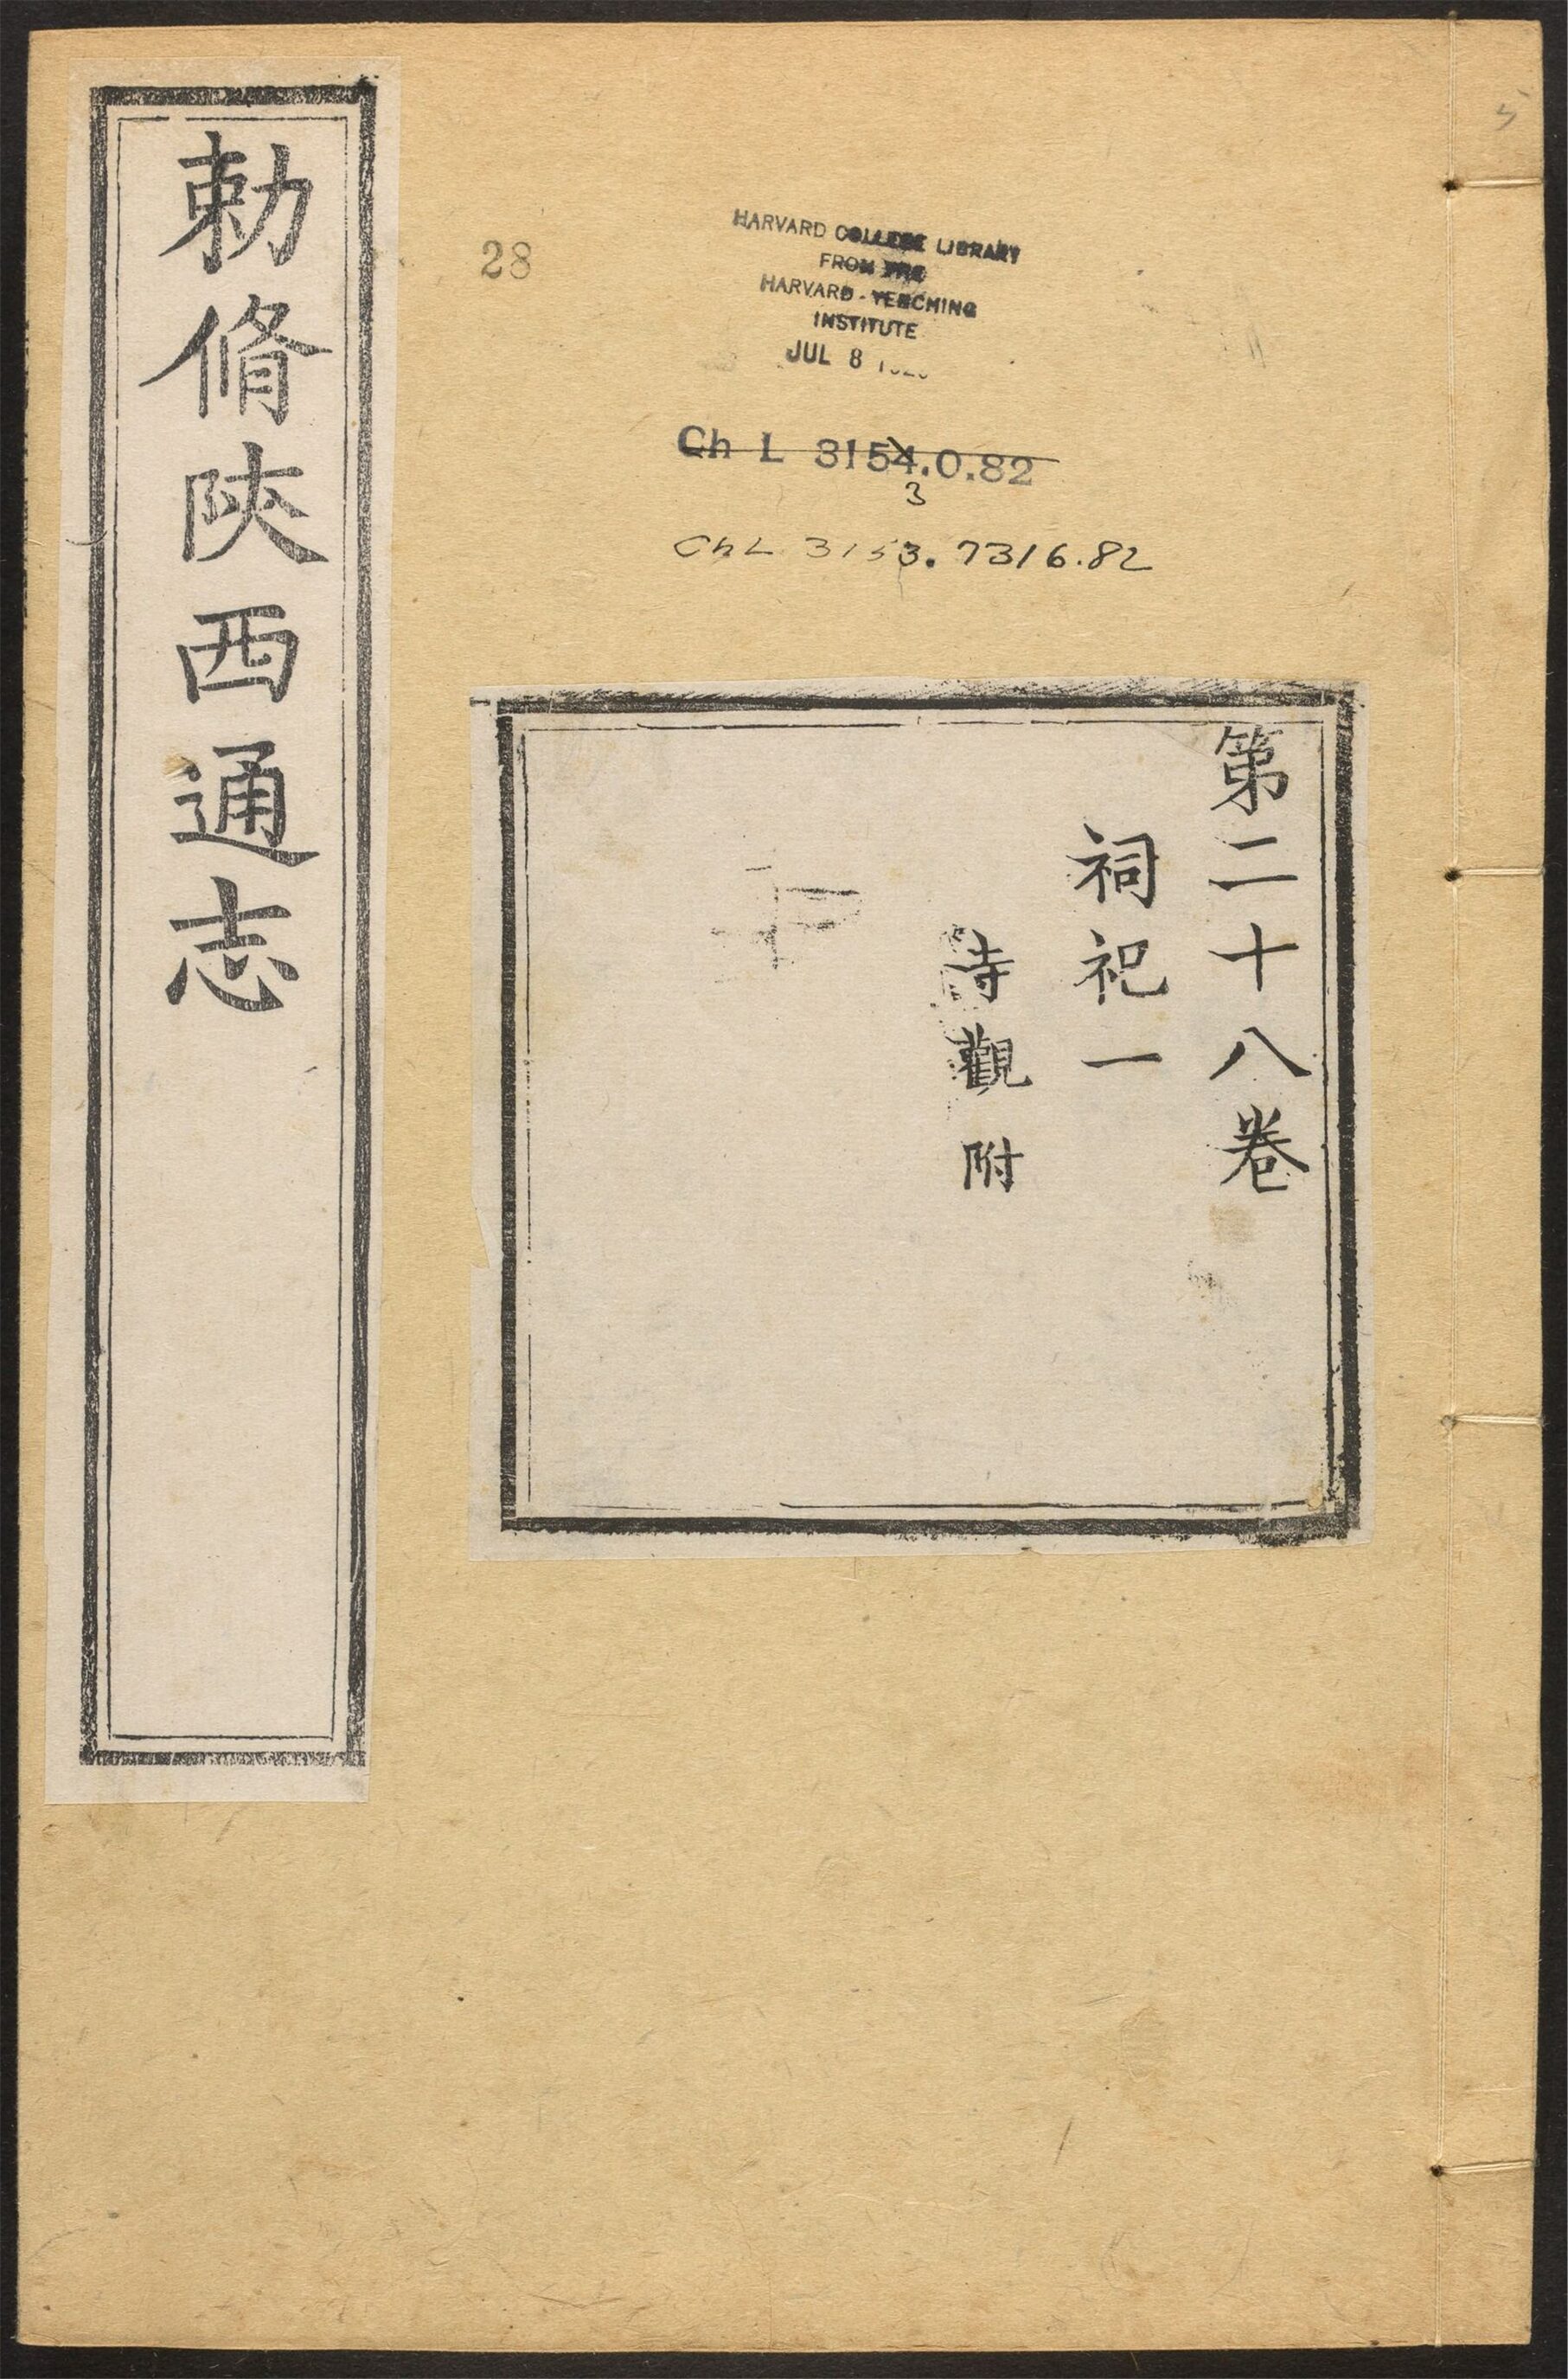 勅脩陜西通志
28
HARVARD COLLEGE LIBRARY
FROM THE
HARVARD-YENCHING
INSTITUTE
JUL 8
Ch L 3154.0.82
3
ChL 3153.7316.82
第二十八卷
祠祀一
寺觀附